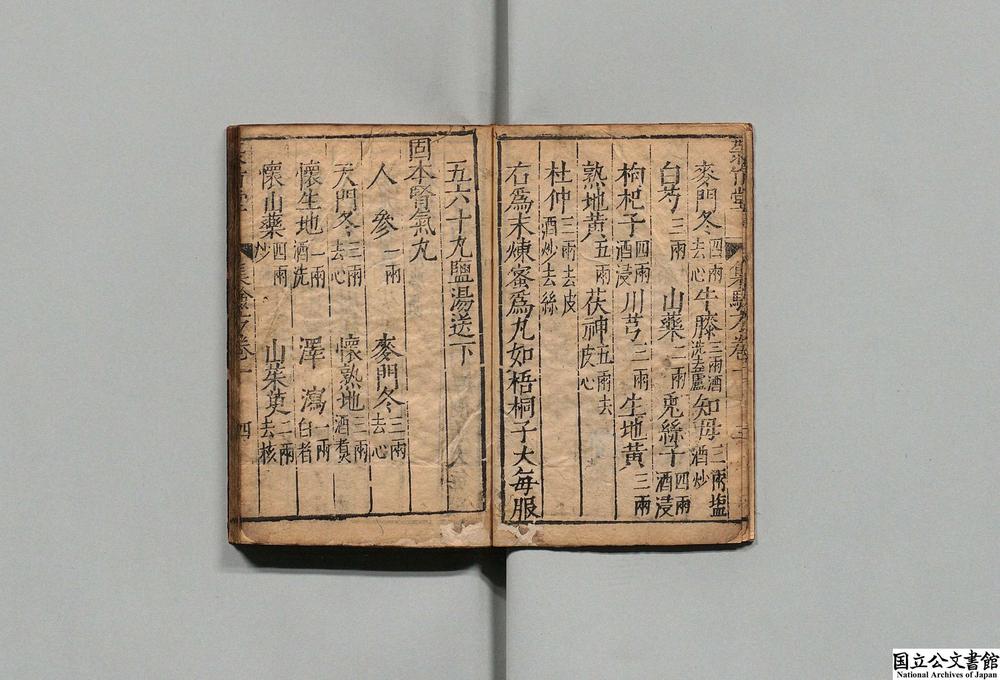 麥門冬四兩去心 牛膝三兩酒洗去蘆 知母三兩塩酒炒
白芍三兩 山藥二兩 兎絲子四兩酒浸
枸杞子四兩酒浸 川芎二兩 生地黃三兩
熟地黃五兩 茯神五兩去皮心
杜仲三兩去皮酒炒去絲
右為末煉蜜為丸如梧桐子大每服
五六十丸鹽湯送下
固本腎氣丸
人參二兩 麥門冬三兩去心
天門冬三兩去心 懷熟地三兩酒煑
懷生地一兩酒洗 澤瀉一兩白者
懷山藥四兩炒 山茱萸二兩去核
集驗方卷一 四
国立公文書館
National Archives of Japan